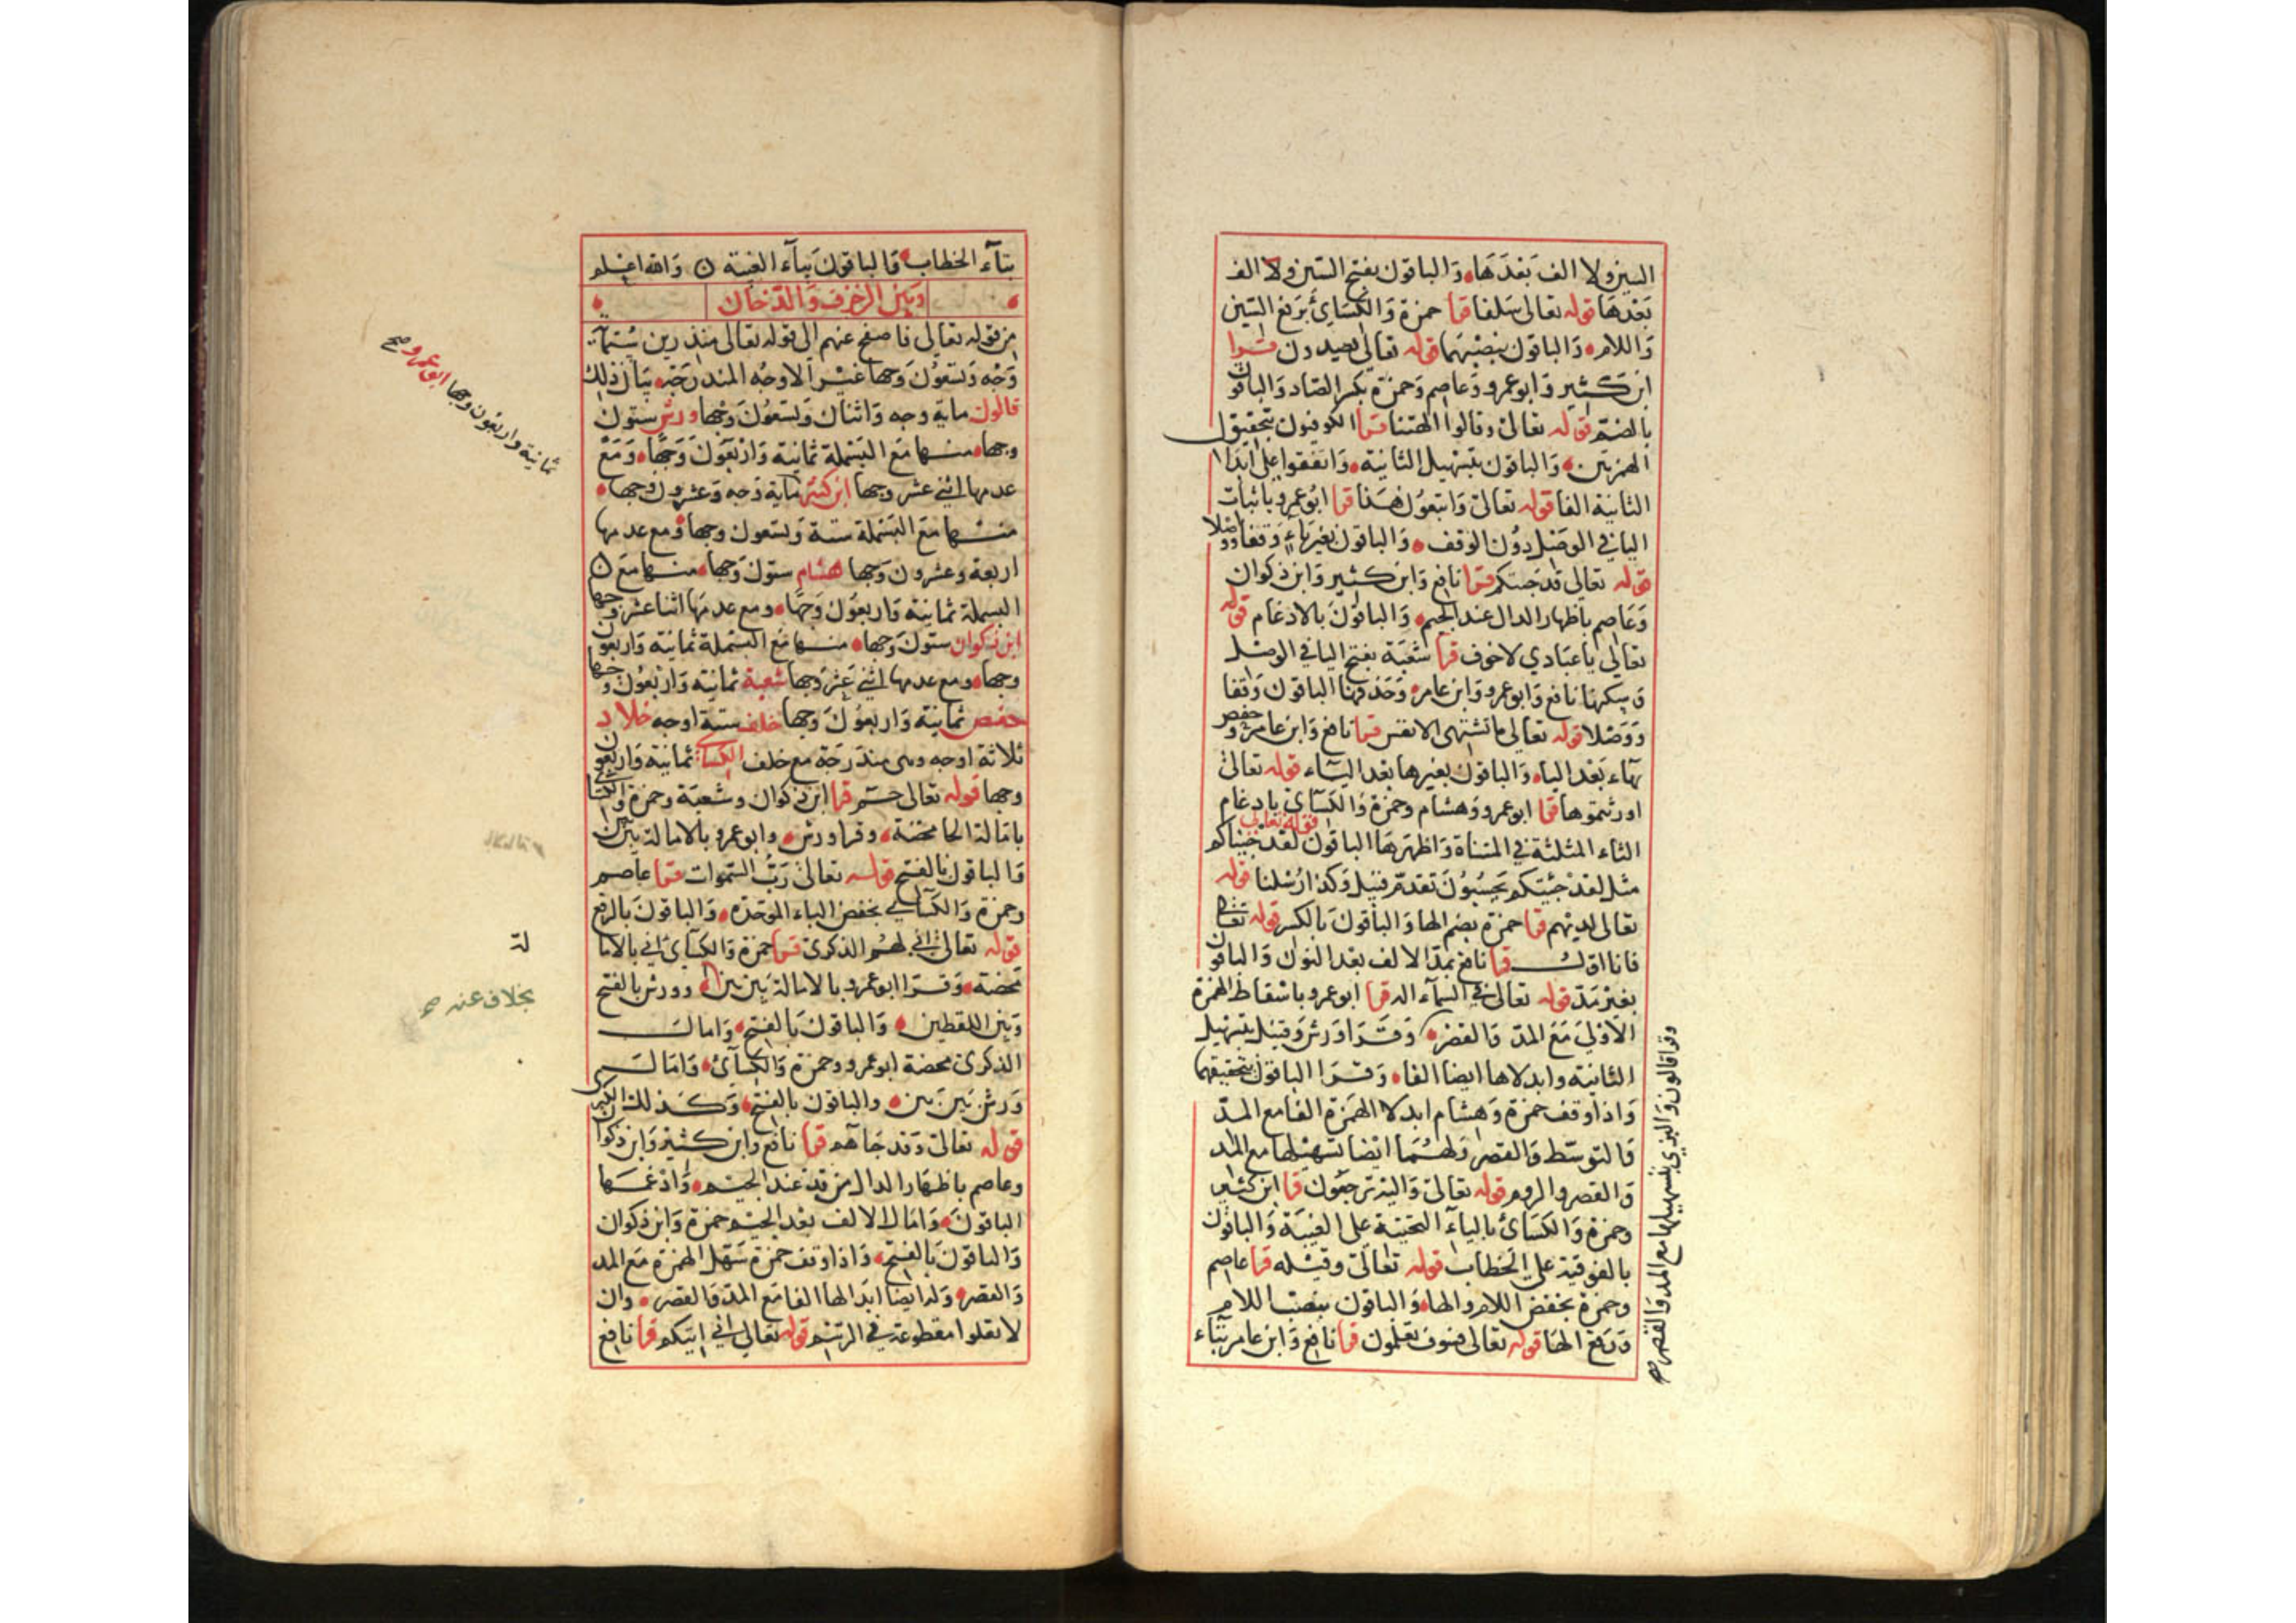 السين ولا الف بَعْدَهَا، وَالباقون بفتح السّين ولا الف
بَعْدَهَا قوله تعالى سَلفا قرا حمزة وَالكسَائ برَفع السّين
وَاللام، وَالباقون بنصْبهمَا قوله تعالى يصدون قرا
ابن كثير وَابو عمرو وَعاصم وَحمزة بكسر الصّاد وَالباقون
بالضم قوله تعالى وقالوا االهتنا قرا الكوفيون بتحقيق
الهمزتين، وَالباقون بتسْهيل الثانية، وَاتفقوا على ابدَال
الثانية الفا قوله تعالى وَاتبعون هَذا قرا ابُو عمرو باثبات
اليا في الوصْل دوُن الوقف، وَالباقون بغيرياء وَقفا ووصْلا
قوله تعالى قد جئتكم قرا نافع وَابن كثير وَابن ذكوان
وَعَاصم باظهار الدال عند الجيم، وَالباقون بالادغام قوله
تعالى ياعبَادي لاخوف قرا شعبَة بفتح اليا في الوصل
وَسكنها نافع وَابو عمرو وَابن عامر، وَحَذفهَا الباقون وَقفا
وَوَصْلا قوله تعالى ما تشتهى الانفس قرا نافع وَابن عامر وحفص
بهَاء بَعْد اليا، وَالباقون بغيرها بَعْد اليَاء قوله تعالى
اورثتموها قرا ابو عمرو وَهشام وحمزة وَالكسَاى بادغام
الثاء المثلثة في المثناة وَاظهرَهَا الباقون قوله تعالى لقد جئناكم
مثل لقد جئتكم يحسبُون تقدم قبيل وَكذا رُسْلنا قوله
تعالى لديْهم قرا حمزة بضم الها وَالباقون بالكسر قوله تعالى
فانا اوّل قرا نافع بمدّ الالف بعْد النون وَالباقون
بغيْر مَدّ قوله تعالى في السمَاء اله قرا ابو عمرو باسْقاط الهمزة
الاوْلىَ مَعَ المدّ وَالقصْر، وَقرَا وَرش وَقنبل بتسْهيل
الثانية وابدلاها ايضا الفا، وَقرا الباقون بتحقيقهما
وَاذا وقف حمزة وَهشام ابدلا الهمَزة الفا مع المدّ
وَالتوسّط وَالقصر وَلهُمَا ايْضا تسْهيْلها مع المد
وَالقصر والروم قوله تعالى وَاليْه ترجعُون قرا ابن كثير
وحمزة وَالكسَائ باليآء التحتية على الغيبَة وَالباقون
بالفوقية على الخطاب قوله تعالى وقيْله قرا عاصم
وحمزة بخفض اللام والها، وَالباقون بنصْب اللام
وَرَفع الهَا قوله تعالى فسَوف تعْلمون قرا نافع وَابن عامر بتاء
وقرا قالون وَالبزى بتسهيلها مع المد وَالقصر صح
بتآء الخطاب، وَالباقونَ بيآء الغيبة وَالله اعْلم
وَبَين الزخرف وَالدّخان
من قوله تعالى فاصفح عنهم الى قوله تعالى منذرين ستمآية
وَجْه وَتسْعُون وَجها غير الاوجُه المندرجة، بيَان ذلك
قالون ماية وجه وَاثنان وَتسْعُون وَجْها ورش ستون
وجها، منها مَعَ البَسْملة ثمانية وَارْبعُون وَجْهًا، وَمَعْ
عدمها اثني عشر وجها ابن كثير ماية وَجه وَعشرون وجها،
منها مَعَ البَسْملة ستة وَتسعون وجها، ومع عدمها
اربعة وعشرون وَجها هشام ستون وَجها، منها مَع
البسملة ثمانية وَاربعُون وَجهًا، ومع عدمهَا اثنا عشر وجها
ابن ذكوان ستون وَجها، منها مَع البسْملة ثمانية وَاربعون
وجها، ومع عدمها اثني عَشر وَجها شعبة ثمانية وَارْبعُون وجها
حفص ثمانية وَاربعُون وَجها خلف ستة اوجه خلاد
ثلاثة اوجه وهى مندَرجَة مع خلف الكسائ ثمانية وَاربعون
وجها قوله تعالى حٓم قرا ابن ذكوان وشعبَة وحمزة والكسائ
بامَالة الحا محضَة، وقرا ورش، وابو عمرو بالامالة بَيْن بَيْن
وَالباقون بالفتح قوله تعالى رَبّ السّموات قرا عاصم
وحمزة وَالكسائ بخفض الباء الموحّدة، وَالباقون بالرفع
قوله تعالى انى لهُم الذكرى قرا حمزة وَالكسَائ انى بالاما
لة
محْضَة، وَقرَا ابو عمرو بالامالة بَين بَين، وورش بالفتح
بخلاف عنه صح
وَبَين اللفظين، وَالباقون بَالفتح، وَامال
الذكرى محضة ابو عمرو وحمزة وَالكسآئ، وَامَال
وَرش بَيْن بَين، والباقون بالفتح، وَكذلك الكبرى
قوله تعالى وَقد جَاهم قرا نافع وابن كثير وَابن ذكوان
وعاصم باظهَار الدال من قد عند الجيم، وَادْغمها
الباقون، وَامَال الالف بَعْد الجيم حمزة وَابن ذكوان
وَالباقون بَالفتح، وَاذا وقف حمزة سَهّل الهمْزة مَع المد
وَالقصر، وَله ايضا ابدَالها الفا مَع المدّ وَالقصر، وان
لا تعلوا مقطوعة في الرسْم قوله تعالى انى اتيكم قرا نافع
ثمانية واربعون وجها ابو عمرو صح